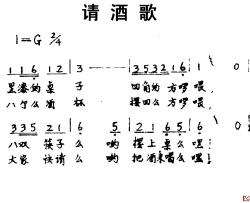 请酒歌
1=G 2/4
1 1 6 1 2 | 3 — | 3 5 3 2 1 6 |
黑漆的桌子 四角的方啰喂,
八个么酒杯 摆四么方啰喂,
3 3 5 2 1 | 6 5 | 2 1 6 5 | 6
八双筷子么哟 摆上桌么嘿
大家快请么哟 把酒来喝么嘿